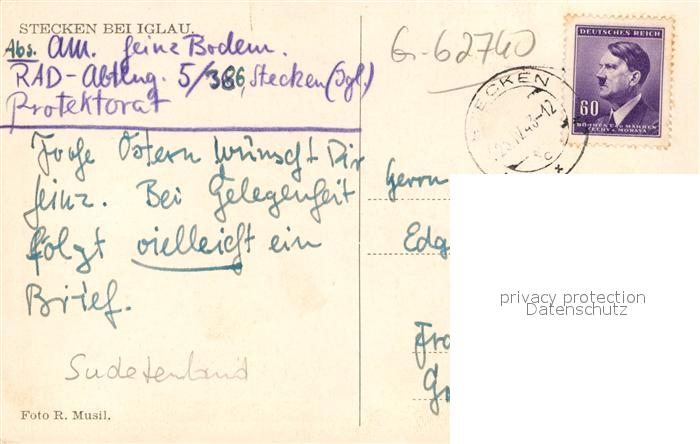 STECKEN BEI IGLAU.
Abs. AM. Heinz Bodem.
RAD-Abtlng. 5/386, Stecken (Igl.)
Protektorat
Frohe Ostern wünscht Dir
Heinz. Bei Gelegenheit
folgt vielleicht ein
Brief.
Sudetenland
Foto R. Musil.
G-62740
DEUTSCHES REICH
60
BÖHMEN u. MÄHREN
ČECHY a MORAVA
ECKEN
Herrn
Edg
Fra
G
privacy protection
Datenschutz